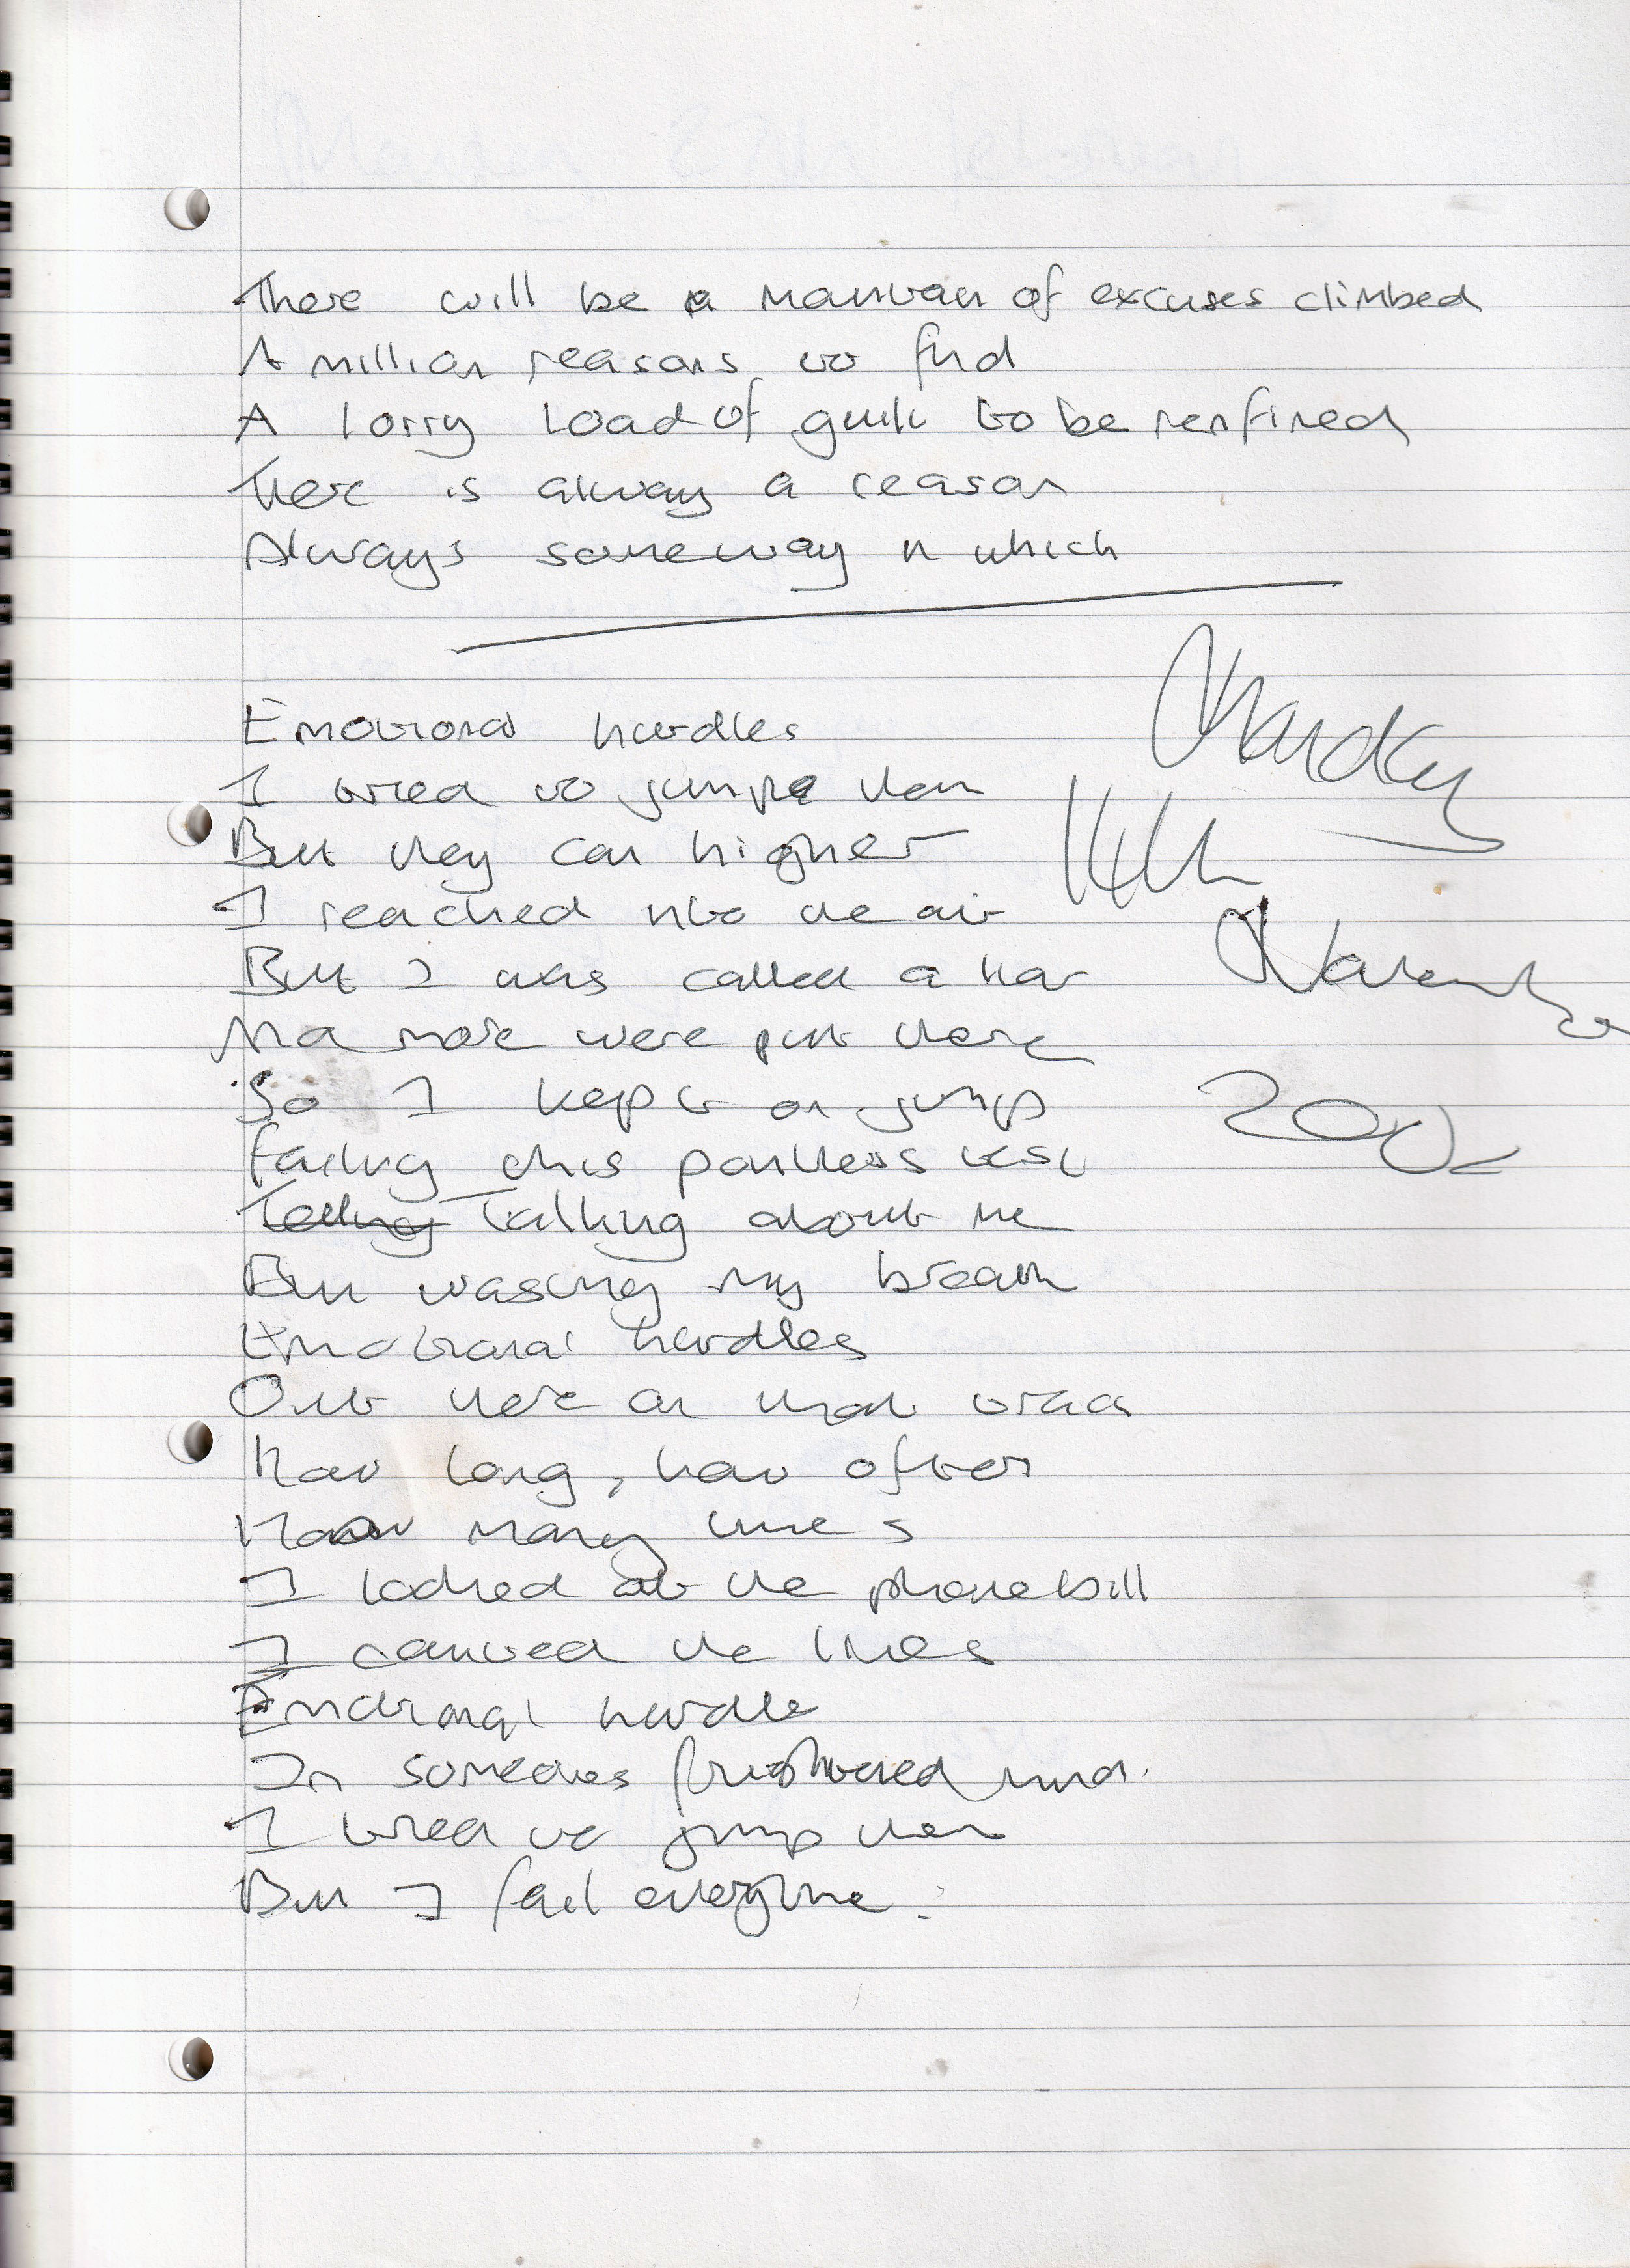 There will be a mountain of excuses climbed
A million reasons to find
A lorry load of guilt to be
There is always a reason
Always someway in which
Emotional hurdles
I tried to jump them
But they can higher
I reached into the air
But I was called a liar
more were put there
So I kept on jump
Failing this pointless test
Talking Talking about me
But wasting my breath
Emotional hurdles
Out here on that track
How long, how often
How many times
I looked at the phone bill
I counted the lines
Emotional hurdle
In someones frightened mind.
I tried to jump them
But I fail everytime.
Monday
11th
November
2002